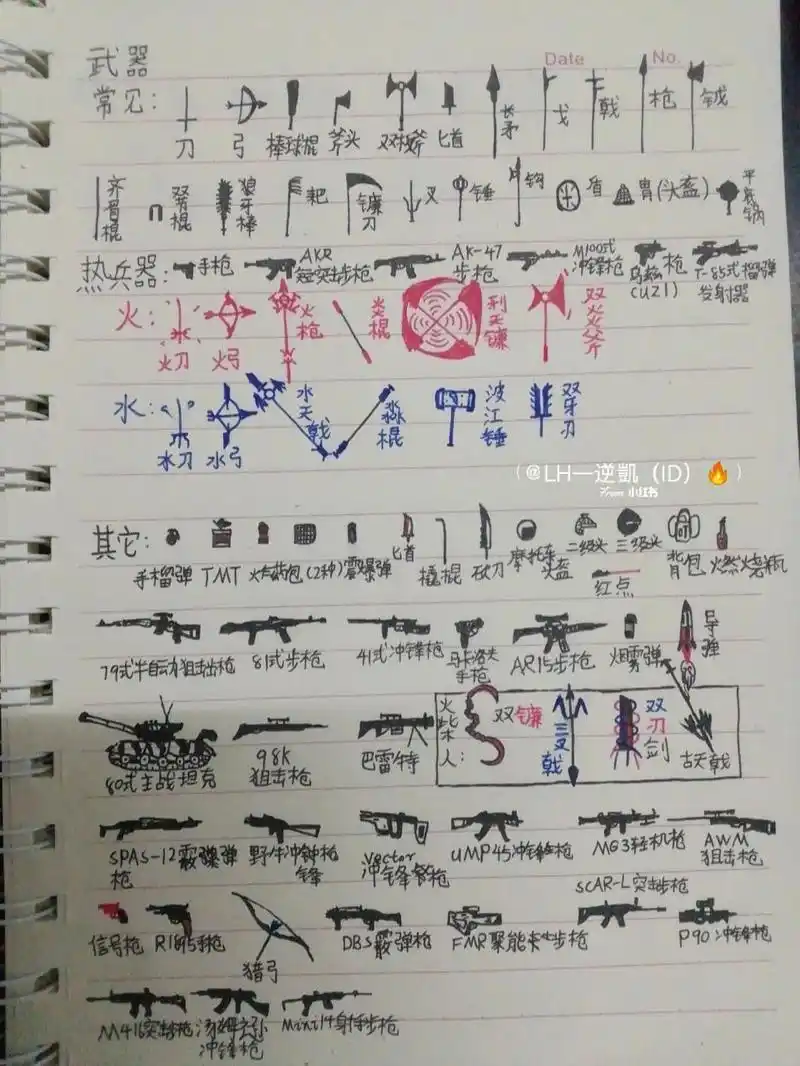 武器
Date No.
常见：
刀 弓 棒球棍 斧头 双板斧 匕首 长矛 戈 戟 枪 钺
齐眉棍 双节棍 狼牙棒 耙 镰刀 叉 锤 钩 盾 胄(头盔) 平底锅
热兵器： 手枪 AKR短突击步枪 AK-47步枪 M100式冲锋枪 乌兹枪(UZI) T-85式榴弹发射器
火： 火刀 火弓 火枪 炎棍 刑天镰 双火火斧
水： 水刀 水弓 水天戟 淼棍 波江锤 双牙刃
(@LH一逆凱（ID）🔥)
From 小红书
其它： 手榴弹 TMT 火药包(2种) 震爆弹 匕首 撬棍 砍刀 摩托车头盔 二级头 三级头 背包 燃烧瓶
红点
79式半自动狙击枪 81式步枪 41式冲锋枪 马卡洛夫手枪 AR15步枪 烟雾弹 导弹
80式主战坦克 98K狙击枪 巴雷特 火柴人： 双镰 三叉戟 双刃剑 古天戟
SPAS-12霰弹枪 野牛冲锋枪 Vector冲锋枪 UMP45冲锋枪 MG3轻机枪 AWM狙击枪
SCAR-L突击步枪
信号枪 R1895手枪 猎弓 DBS霰弹枪 FMR聚能束步枪 P90冲锋枪
M416突击枪 汤姆逊冲锋枪 Mini14射手步枪